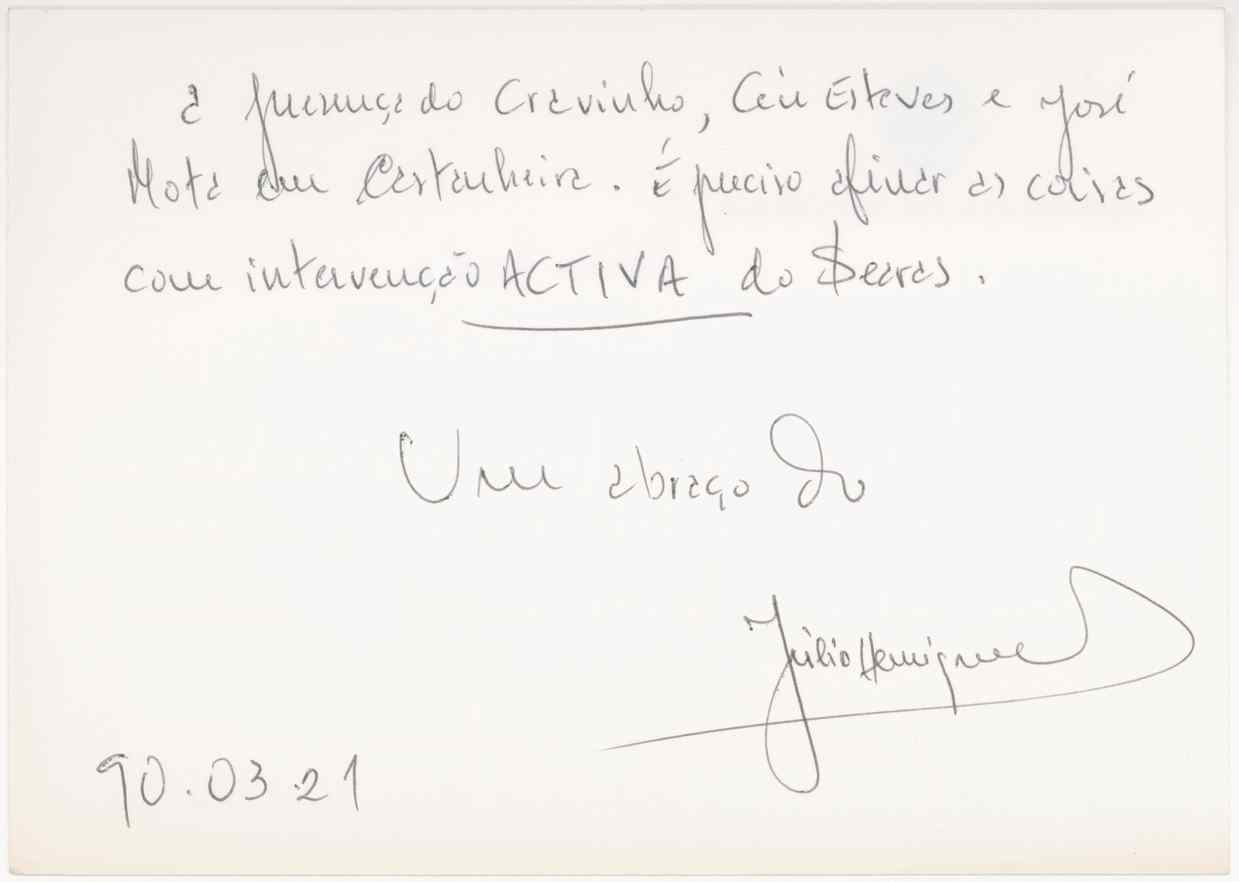 a presença do Cravinho, Céu Esteves e José
Mota em Castanheira. É preciso afinar as coisas
com intervenção ACTIVA do Seabras.
Um abraço do
Júlio Henriques
90.03.21